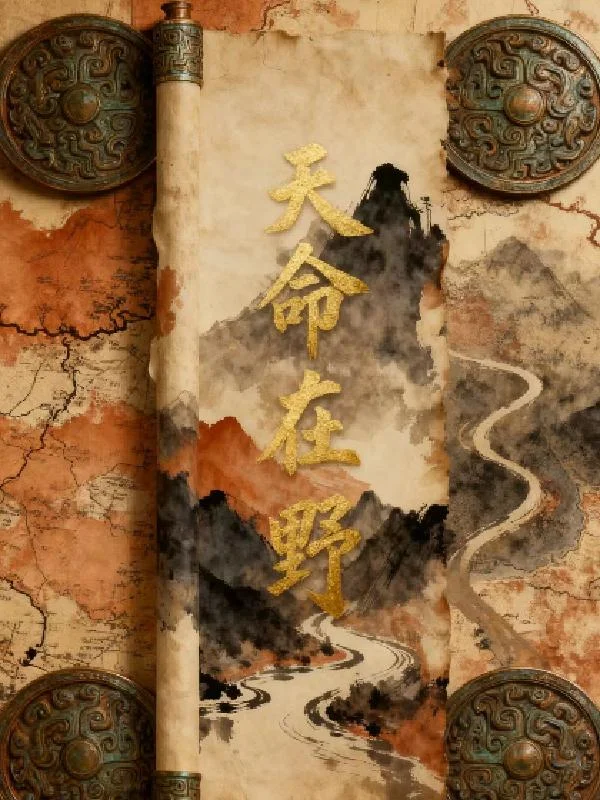 天命在野